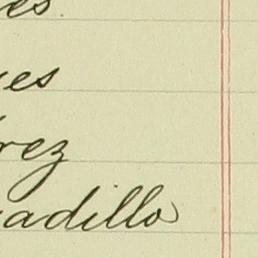 es.
es
rez
adillo